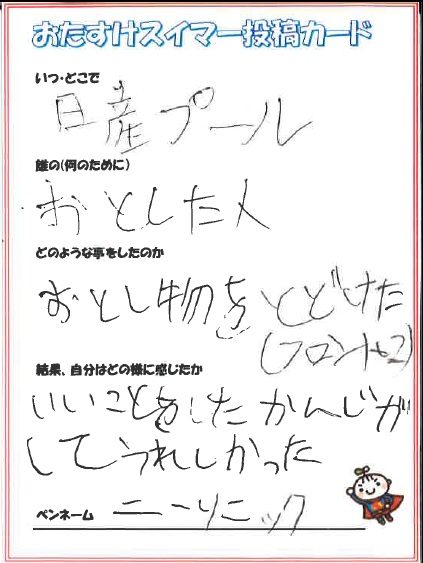 おたすけスイマー投稿カード
いつ・どこで
日産プール
誰の(何のために)
おとした人
どのような事をしたのか
おとし物をとどけた
(フロントに)
結果、自分はどの様に感じたか
いいことをしたかんじが
してうれしかった
ペンネーム ニーソニック